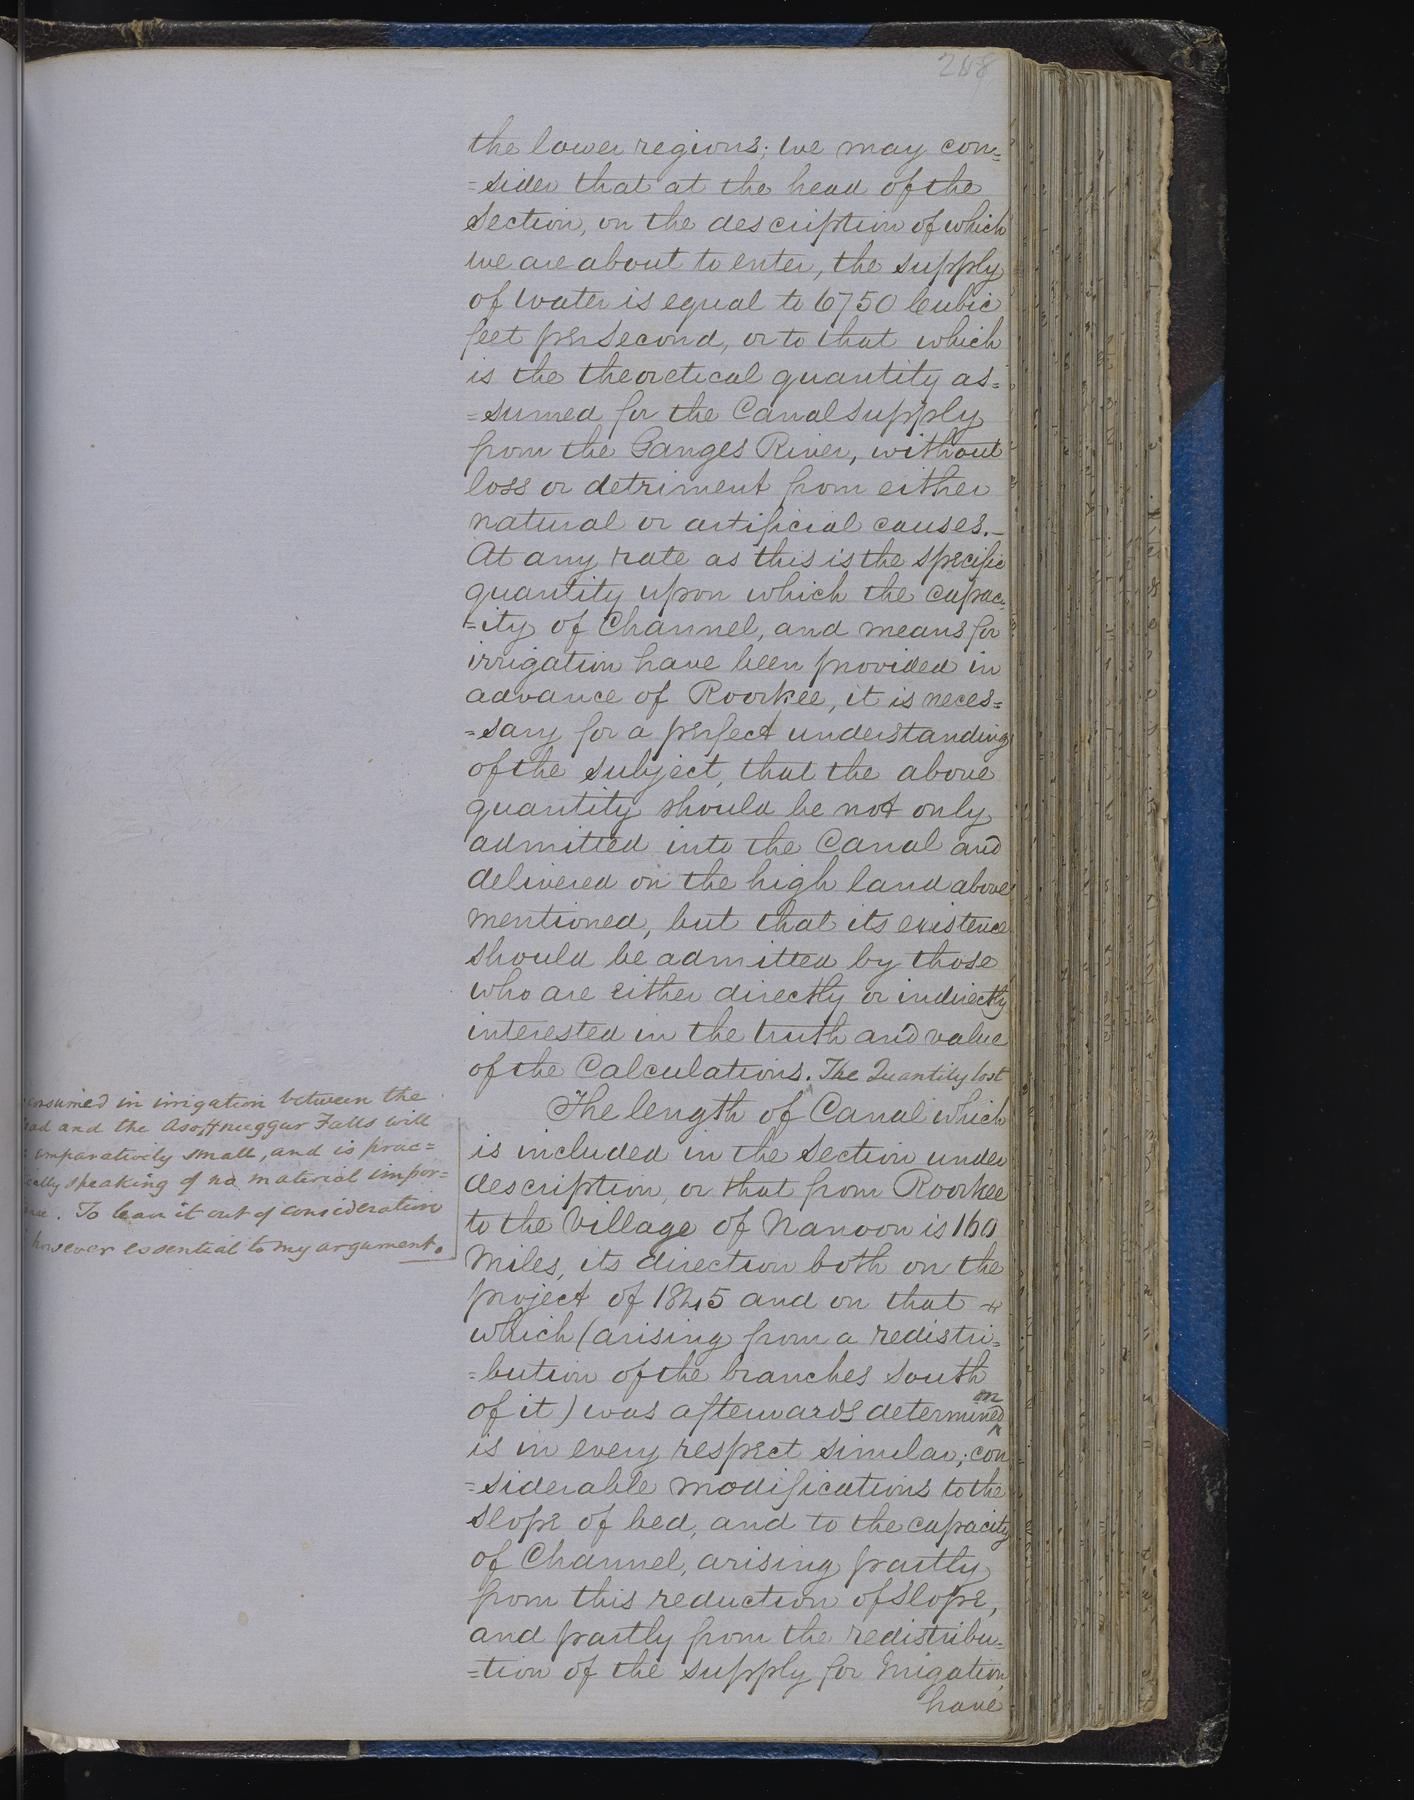 268
the lower regions; we may con=
=sider that at the head of the
Section, on the description of which
we are about to enter, the supply
of water is equal to 6750 Cubic
feet per second, or to that which
is the theoretical quantity as=
=sumed for the Canal supply
from the Ganges River, without
loss or detriment from either
natural or artificial causes.—
At any rate as this is the specific
quantity upon which the capac=
=ity of Channel, and means for
irrigation have been provided in
advance of Roorkee, it is neces=
=sary for a perfect understanding
of the subject, that the above
quantity should be not only
admitted into the Canal and
delivered on the high land above
mentioned, but that its existence
should be admitted by those
who are either directly or indirectly
interested in the truth and value
of the Calculations. The Quantity lost
consumed in irrigation between the
and the Asoffnuggur Falls will
comparatively small, and is prac=
speaking of no material impor=
. To leave it out of consideration
however essential to my argument.
The length of Canal which
is included in the Section under
description, or that from Roorkee
to the Village of Nanoon is 160
Miles, its direction both on the
project of 1845 and on that
which (arising from a redistri=
=bution of the branches south
of it) was afterwards determined on
is in every respect similar; con
=siderable modifications to the
slope of bed, and to the capacity
of Channel, arising partly
from this reduction of slope,
and partly from the redistribu=
=tion of the supply for Irrigation
have